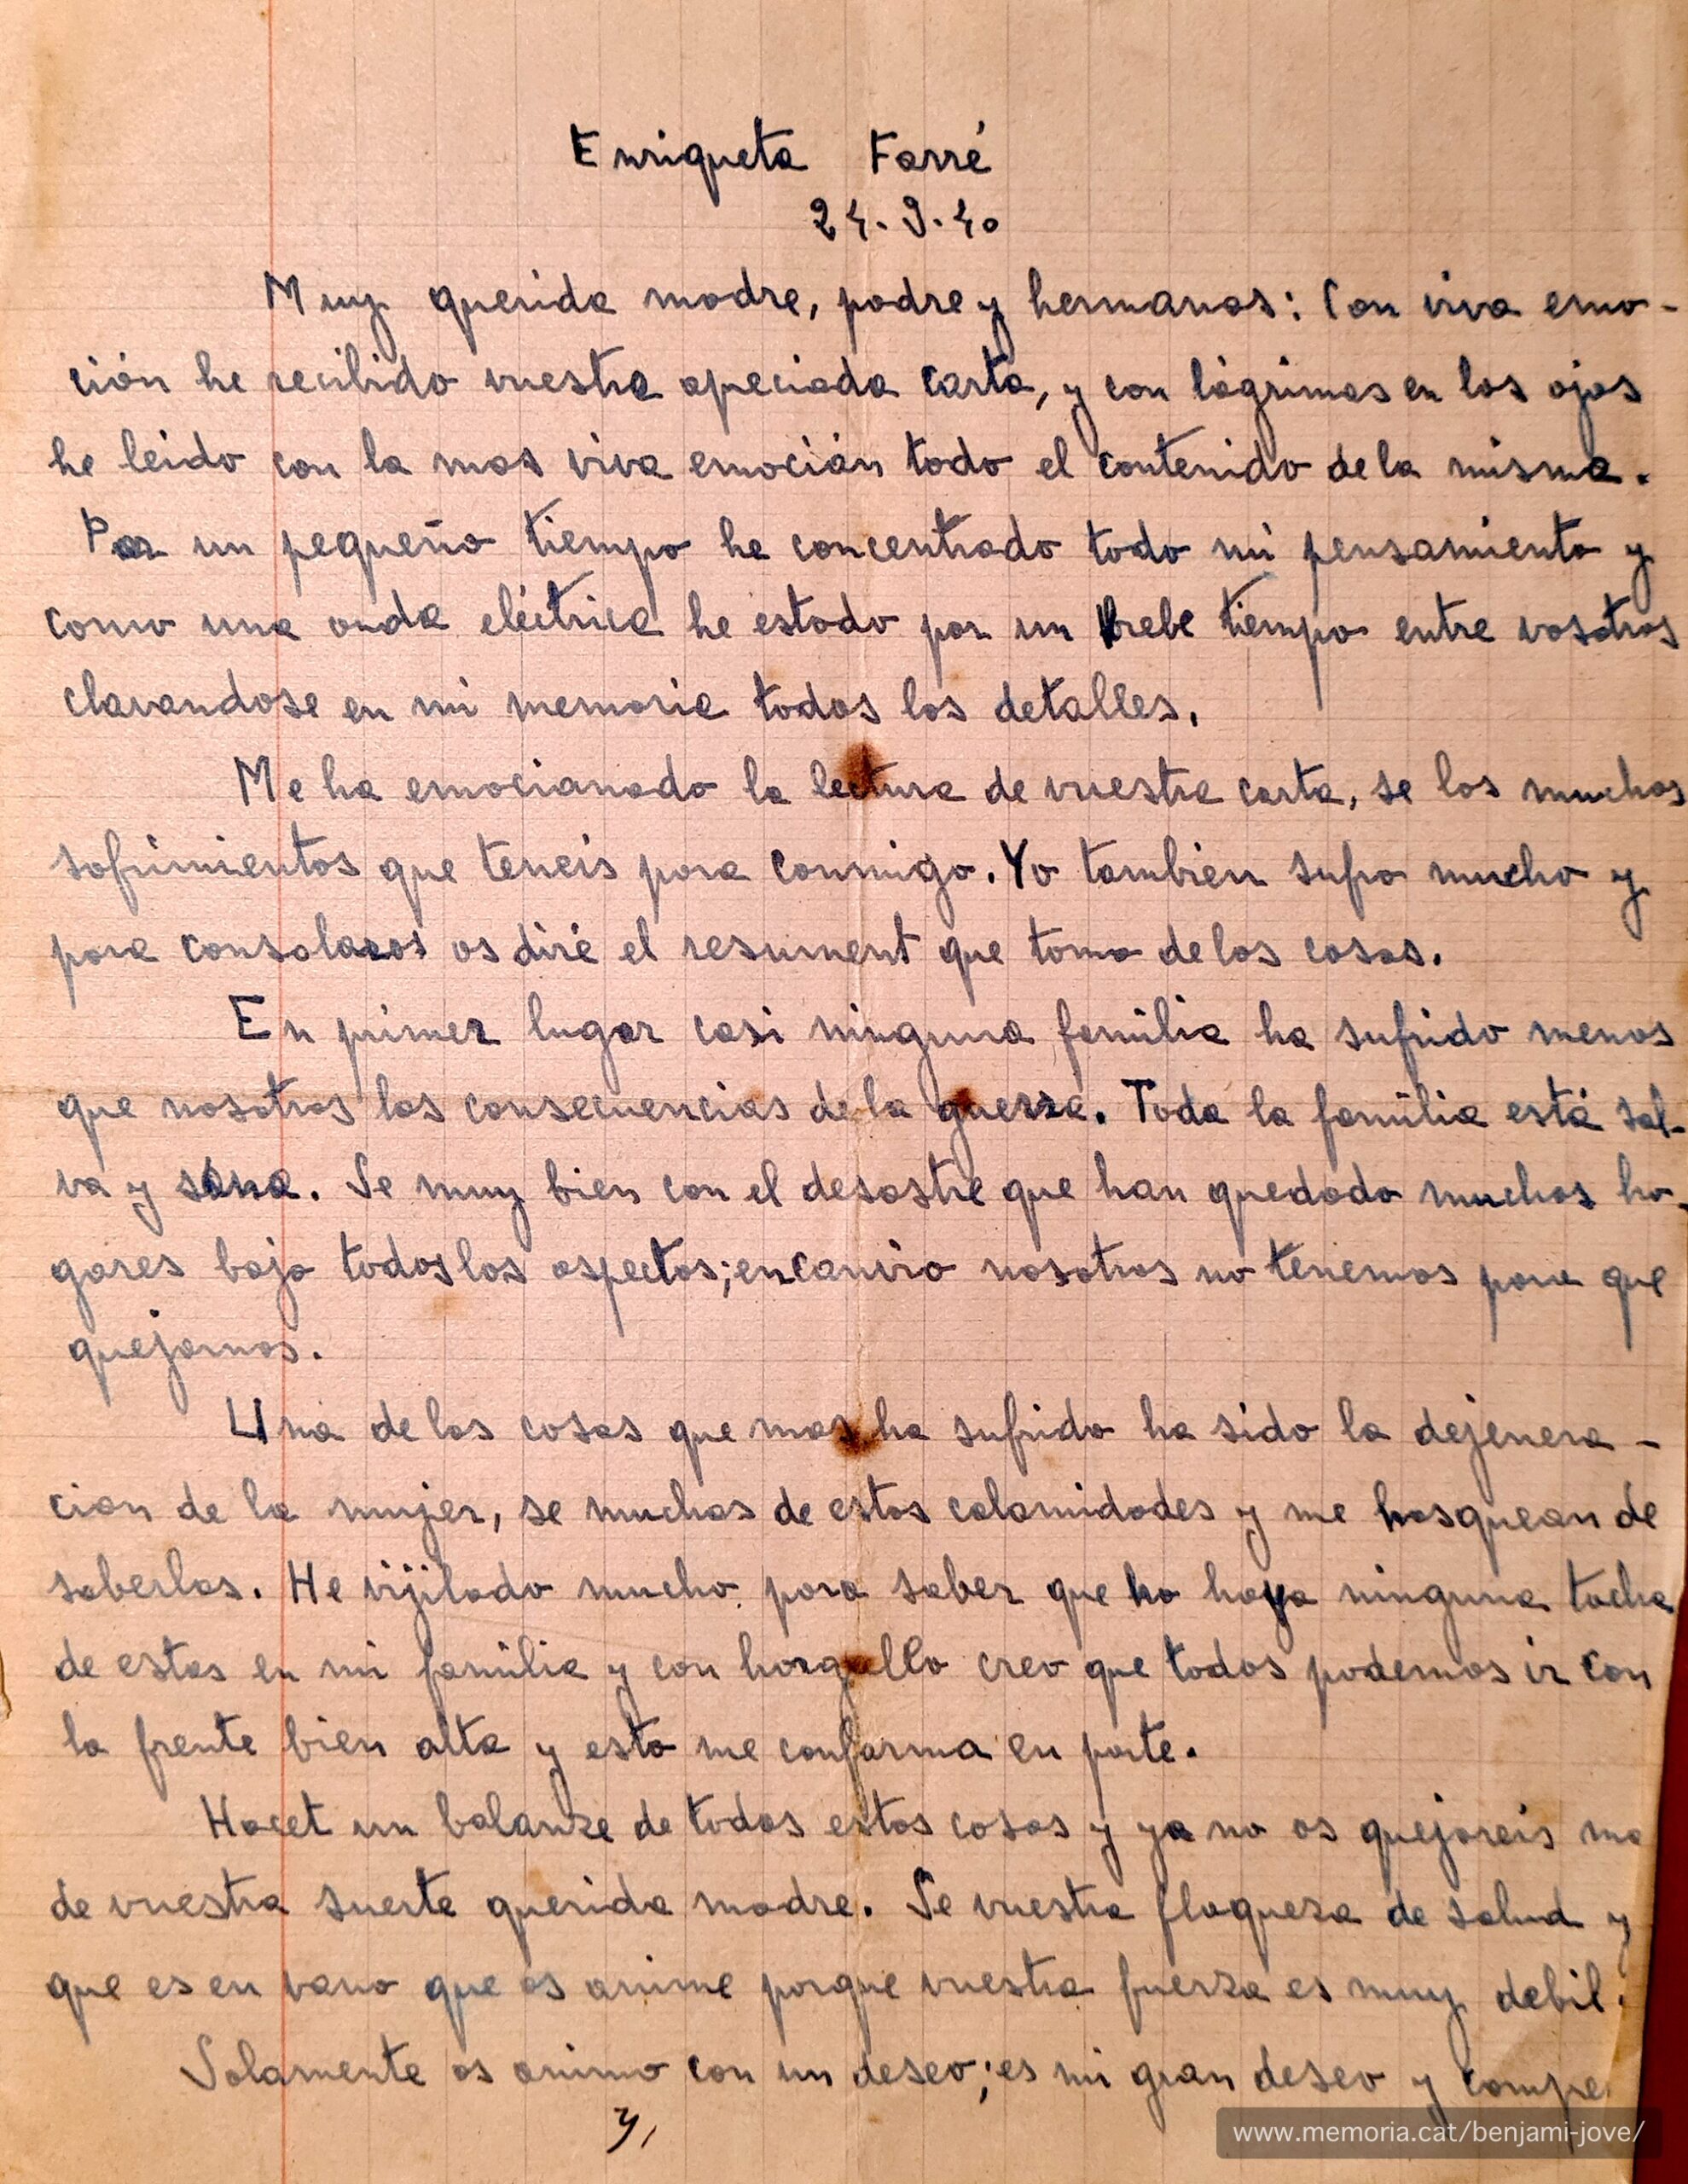 Enriqueta Farré
24.9.40
Muy querida madre, padre y hermanos: Con viva emo-
ción he recibido vuestra apeciada carta, y con lágrimas en los ojos
he leido con la mas viva emoción todo el contenido de la misma.
Por un pequeño tiempo he concentrado todo mi pensamiento y
como una onda eléctrica he estado por un brebe tiempo entre vosotros
clavandose en mi memoria todos los detalles.
Me ha emocionado la lectura de vuestra carta, se los muchos
sofrimientos que teneis para conmigo. Yo tambien sufro mucho y
para consolaros os diré el resument que tomo de las cosas.
En primer lugar casi ninguna família ha sufrido menos
que nosotros las consecuencias de la guerra. Toda la família está sal-
va y sana. Se muy bien con el desastre que han quedado muchos ho-
gares bajo todos los aspectos; en canvio nosotros no tenemos para que
quejarnos.
Una de las cosas que mas ha sufrido ha sido la dejenera-
cion de la mujer, se muchas de estas calamidades y me hasquean de
saberlas. He vijilado mucho para saber que no haya ninguna tacha
de estas en mi família y con horgullo creo que todos podemos ir con
la frente bien alta y esto me conforma en parte.
Hacet un balanze de todas estas cosas y ya no os quejareis ma
de vuestra suerte querida madre. Se vuestra flaqueza de salud y
que es en vano que os anime porque vuestra fuerza es muy debil.
Solamente os animo con un deseo; es mi gran deseo y compe
www.memoria.cat/benjami-jove/